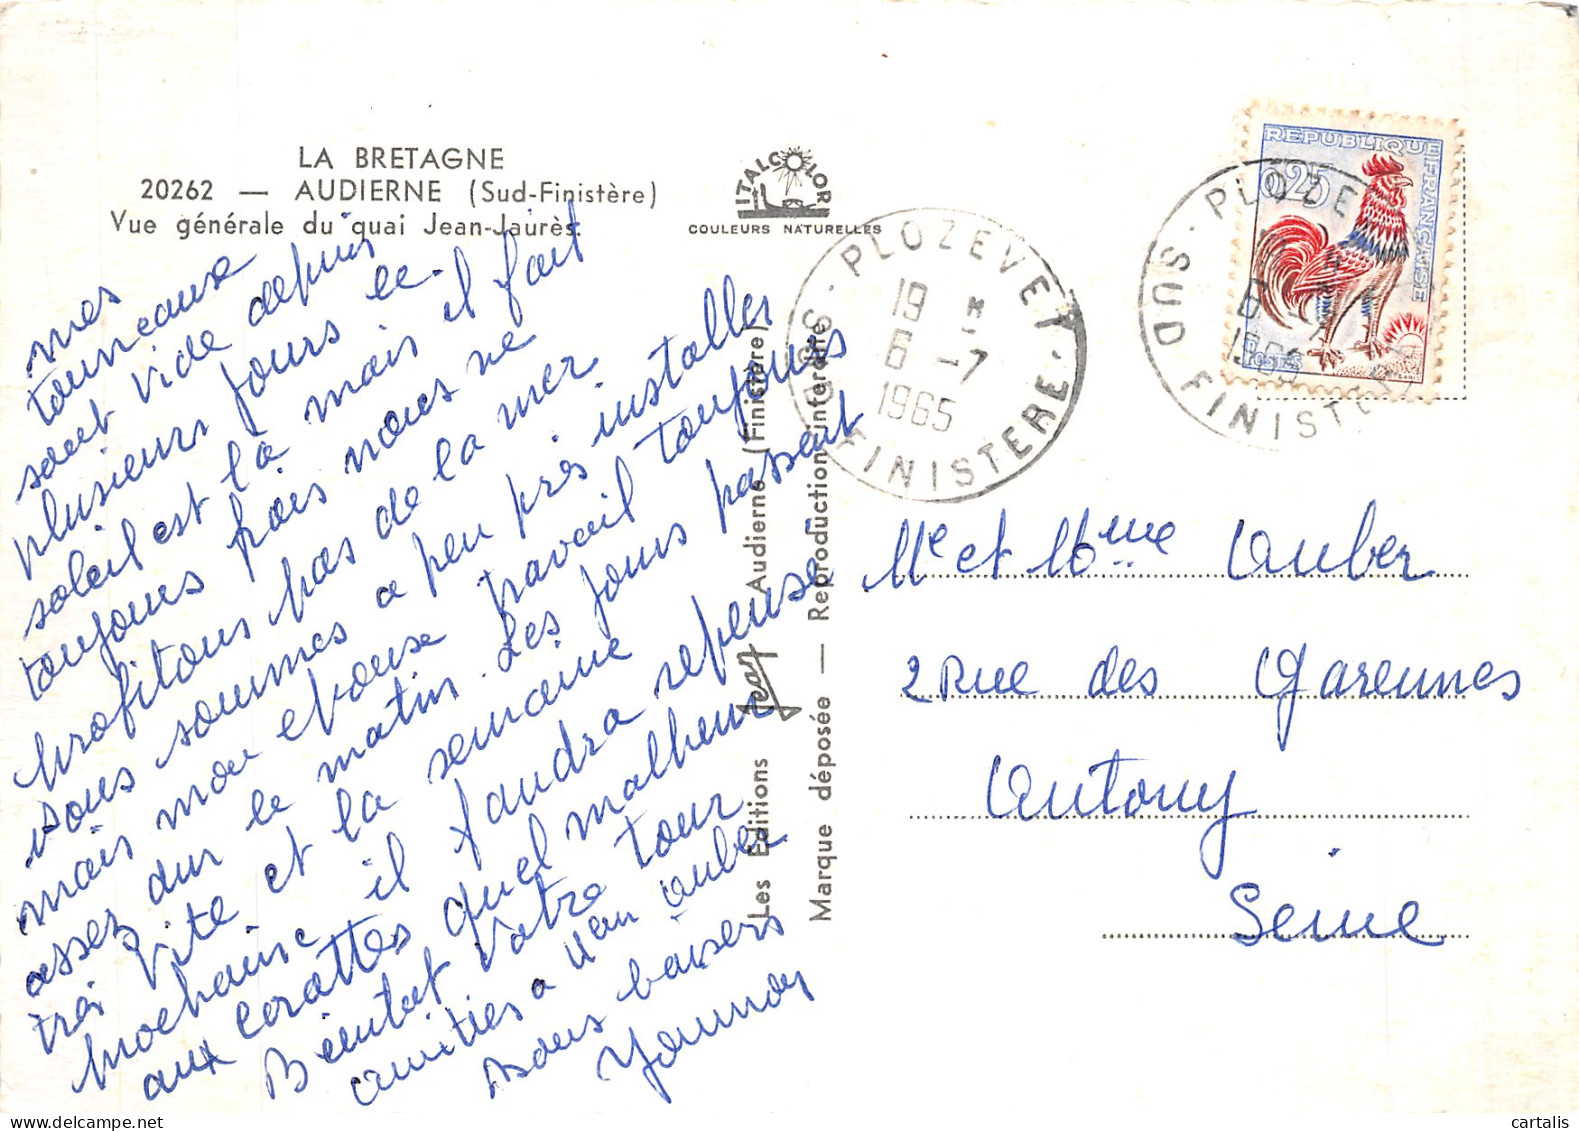 LA BRETAGNE
20262 — AUDIERNE (Sud-Finistère)
Vue générale du quai Jean-Jaurès.
ITALCOLOR
COULEURS NATURELLES
PLOZEVET
19
6 -7
1965
SUD FINISTERE
REPUBLIQUE FRANÇAISE
0,25
POSTES
PLOZE
6
1965
SUD FINISTERE
mes
tonneaux
sont vide depuis
plusieurs jours le
soleil est là mais il fait
toujours frais nous ne
profitons pas de la mer
nous sommes a peu près installés
mais mon epouse travail toujours
assez dur le matin. Les jours passent
très vite et la semaine
prochaine il faudra repenser
aux carottes quel malheur
Bientot votre tour
amitiés a Auber
Nous baisers
Les Editions Jean Audierne (Finistère)
Marque déposée — Reproduction interdite
Mr et Mme Auber
2 Rue des Garennes
Antony
Seine
delcampe.net
cartalis